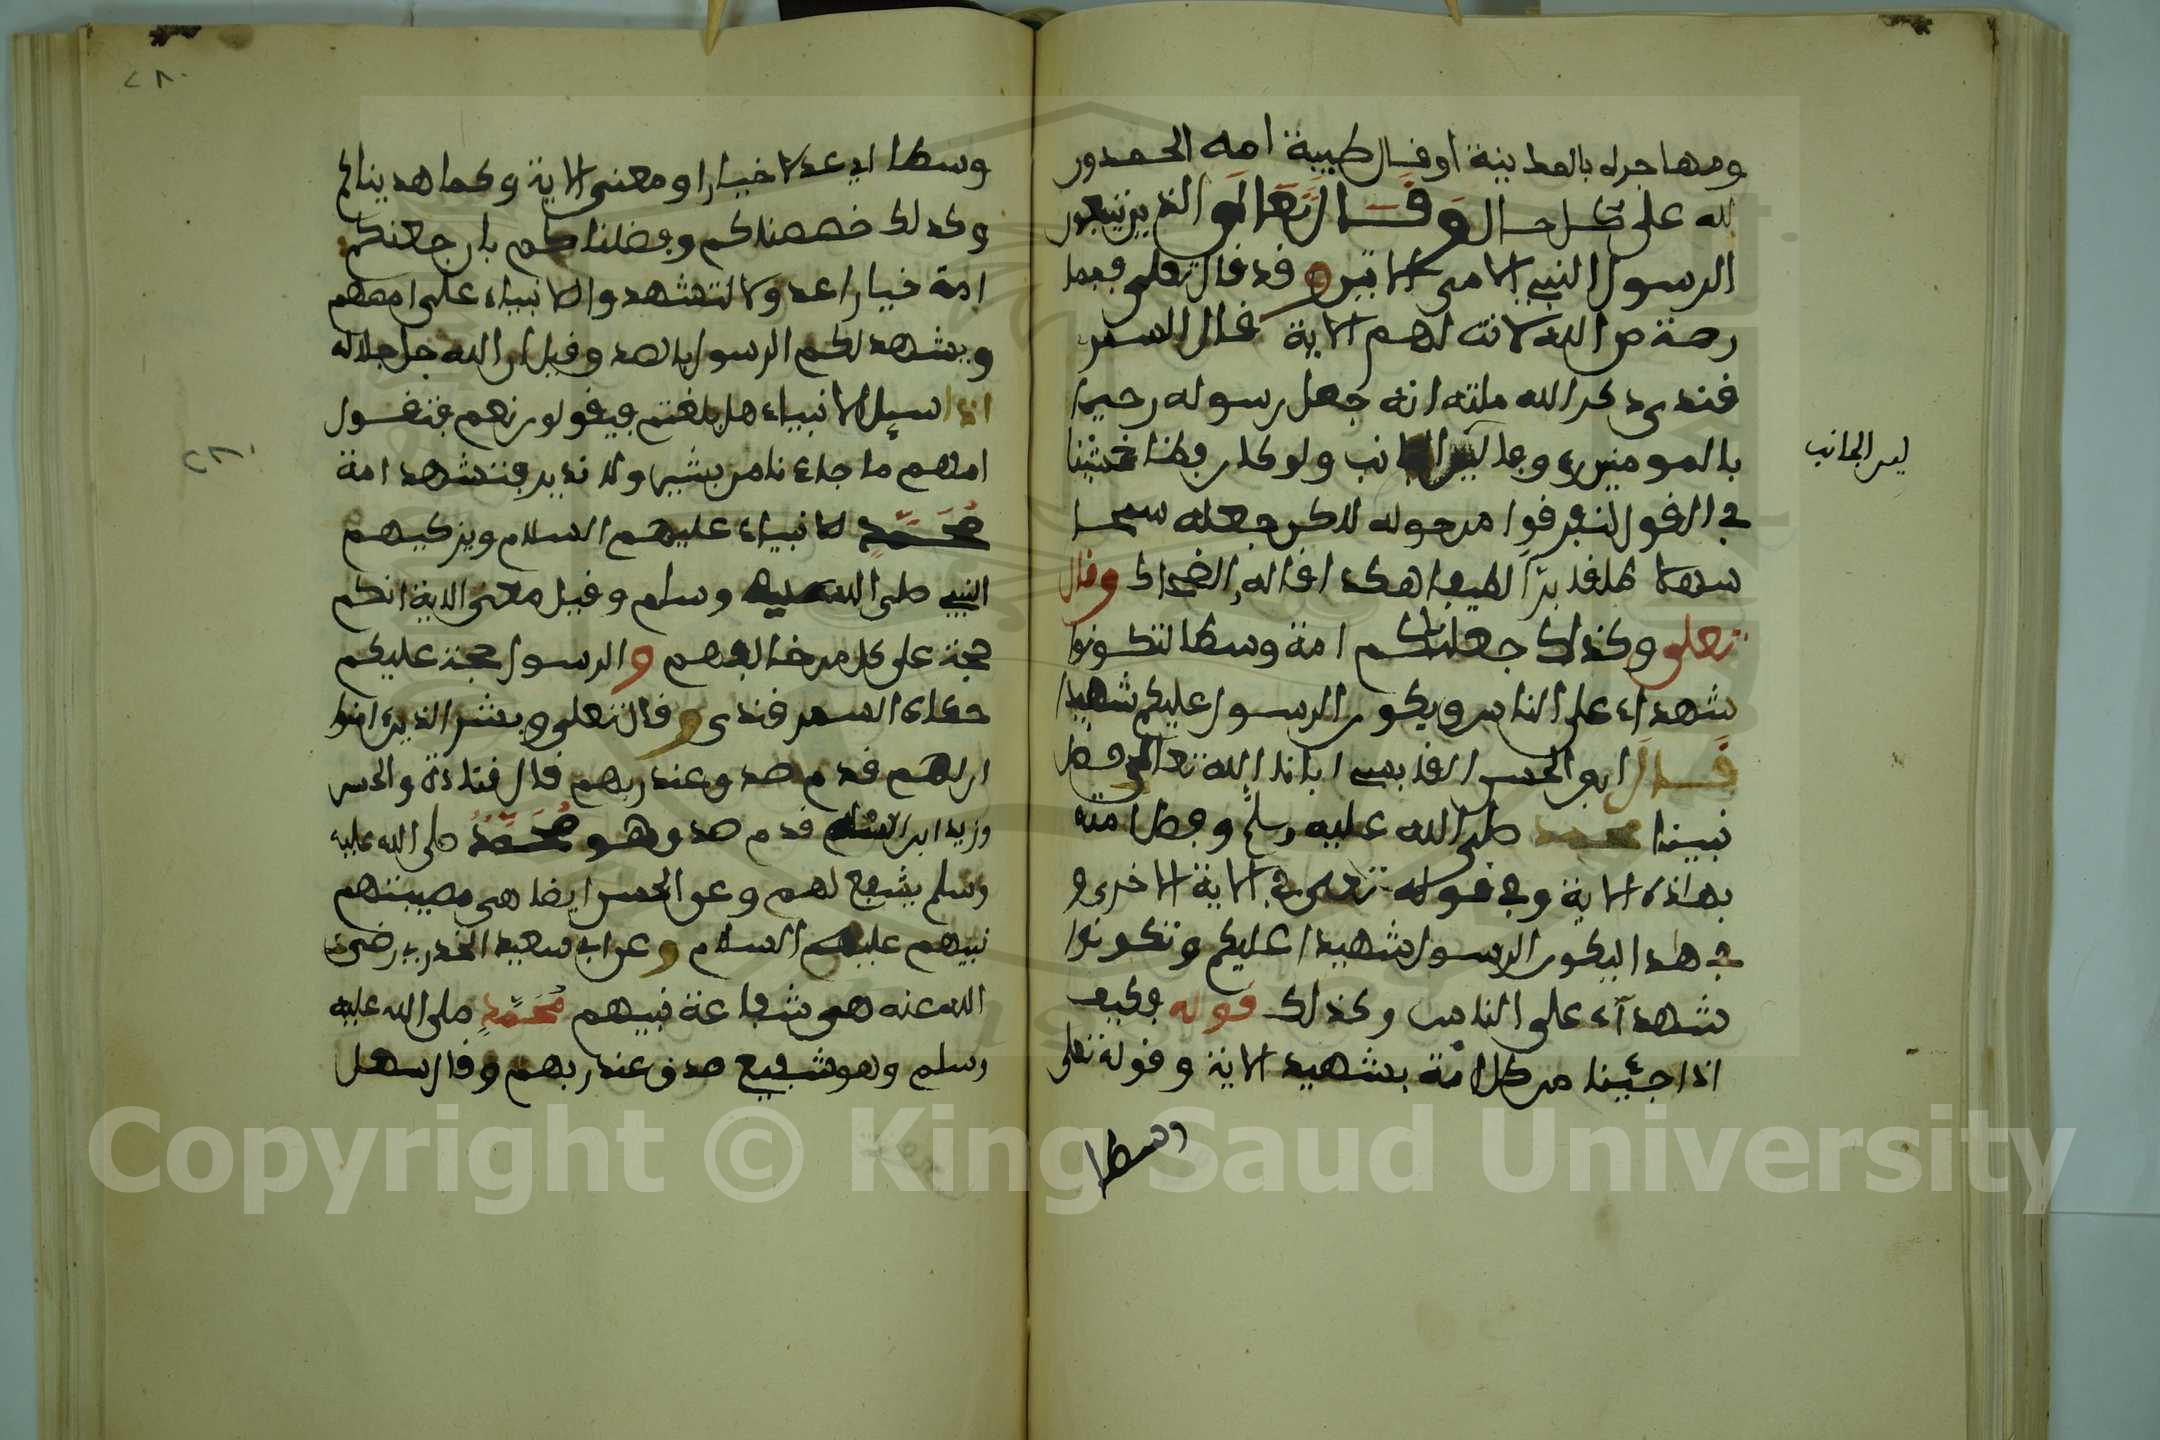 ومهاجره بالمدينة او قال طيبة امته الحمدون
لله على كل حال وقال تعالى الذين يتبعون
الرسول النبي الامي الايتين وقد قال تعلى فبما
رحمة من الله لانت لهم الاية قال السمرقندي
قندي ذكر الله منته انه جعل رسوله رحيما
بالمومنين رءوفا لين الجانب ولو كان فظا خشنا
في القول لتفرقوا من حوله لاكن جعله سمحا
سهلا طلقا برا لطيفا هكذا قاله الضحاك وقال
تعلى وكذلك جعلناكم امة وسطا لتكونوا
شهداء على الناس ويكون الرسول عليكم شهيدا
قال ابو الحسن القابسي ابان الله تعالى فضل
نبينا محمد صلى الله عليه وسلم وفضل امته
بهاذه الاية وفي قوله تعلى في الاية الاخرى و
في هذا ليكون الرسول شهيدا عليكم وتكونوا
شهدآء على الناس وكذلك قوله فكيف
اذا جئنا من كل امة بشهيد الاية وقوله تعلى
وسطا
لين الجانب
٢٨٠
وسطا اي عدلا خيارا ومعنى الاية وكما هديناكم
وكذلك خصصناكم وفضلناكم بان جعلنكم
امة خيارا عدولا لتشهدوا للانبياء على اممهم
ويشهد لكم الرسول بالصدق وقيل ان الله جل جلاله
اذا سيل الانبياء هل بلغتم فيقولون نعم فتقول
اممهم ما جاءنا من بشير ولا نذير فتشهد امة
مُحَمَّدٍ للانبياء عليهم السلام ويزكيهم
النبي صلى الله عليه وسلم وقيل معنى الاية انكم
حجة على كل من خالفهم والرسول حجة عليكم
حكاه السمرقندي وقال تعلى وبشر الذين امنوا
ان لهم قدم صدق عند ربهم قال قتادة والحسن
وزيد ابن اسلم قدم صدق هو مُحَمَّدٌ صلى الله عليه
وسلم يشفع لهم وعن الحسن ايضا هي مصيبتهم
نبيهم عليهم السلام وعن ابي سعيد الخدري رضي
الله عنه هي شفاعة نبيهم مُحَمَّدٍ صلى الله عليه
وسلم وهو شفيع صدق عند ربهم وقال سهل
Copyright © King Saud University